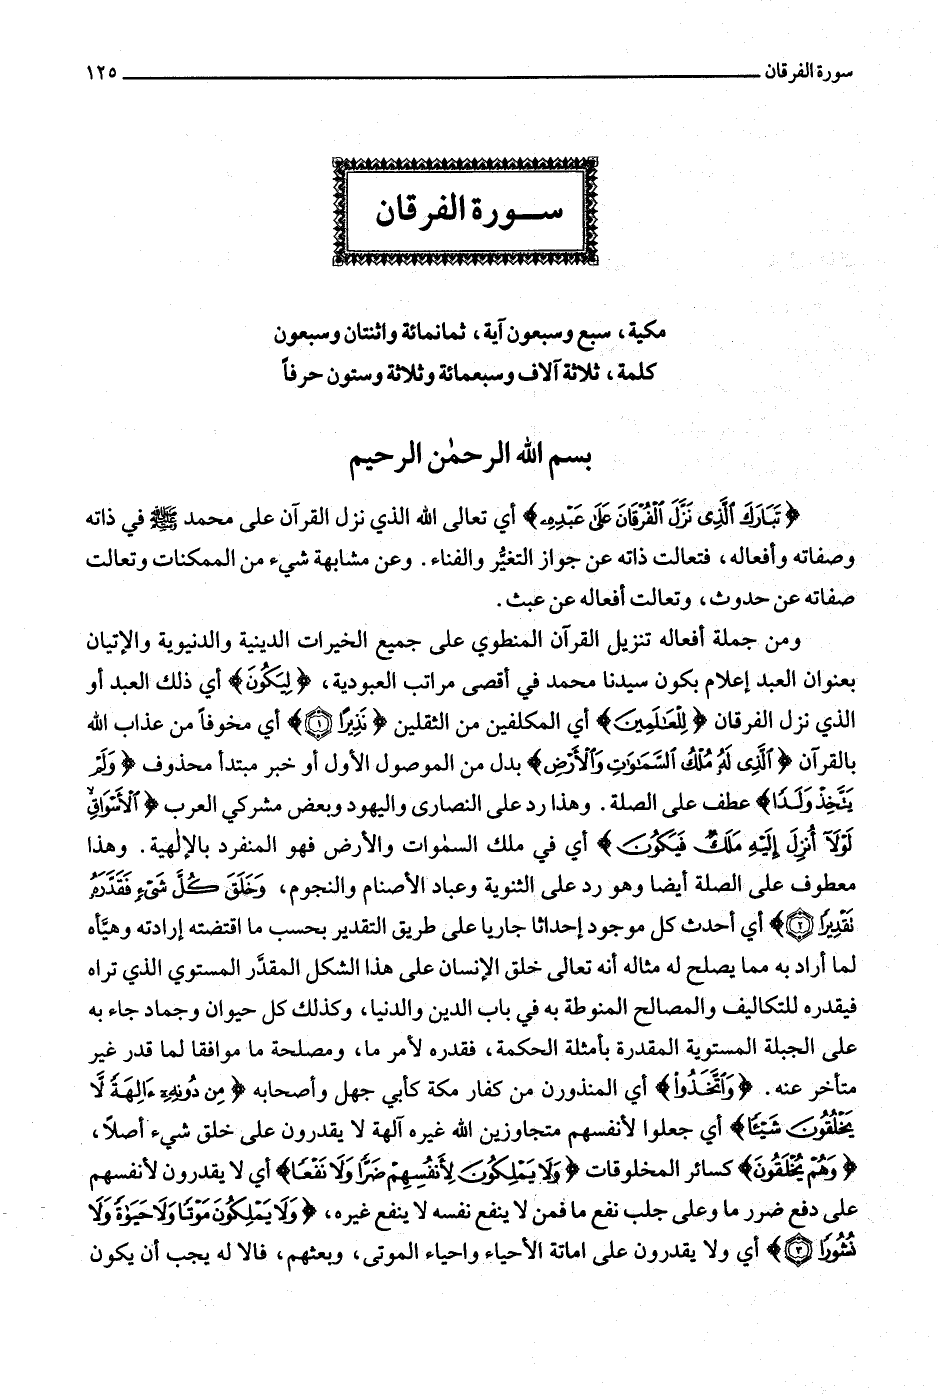 سورة الفرقان ١٢٥
ســورة الفرقان
مكية، سبع وسبعون آية، ثمانمائة واثنتان وسبعون
كلمة، ثلاثة آلاف وسبعمائة وثلاثة وستون حرفاً
بسم الله الرحمٰن الرحيم
﴿تَبَارَكَ ٱلَّذِى نَزَّلَ ٱلْفُرْقَانَ عَلَىٰ عَبْدِهِۦ﴾ أي تعالى الله الذي نزل القرآن على محمد ﷺ في ذاته
وصفاته وأفعاله، فتعالت ذاته عن جواز التغيُّر والفناء. وعن مشابهة شيء من الممكنات وتعالت
صفاته عن حدوث، وتعالت أفعاله عن عبث.
ومن جملة أفعاله تنزيل القرآن المنطوي على جميع الخيرات الدينية والدنيوية والإتيان
بعنوان العبد إعلام بكون سيدنا محمد في أقصى مراتب العبودية، ﴿لِيَكُونَ﴾ أي ذلك العبد أو
الذي نزل الفرقان ﴿لِلْعَـٰلَمِينَ﴾ أي المكلفين من الثقلين ﴿نَذِيرًا ١﴾ أي مخوفاً من عذاب الله
بالقرآن ﴿ٱلَّذِى لَهُۥ مُلْكُ ٱلسَّمَـٰوَٰتِ وَٱلْأَرْضِ﴾ بدل من الموصول الأول أو خبر مبتدأ محذوف ﴿وَلَمْ
يَتَّخِذْ وَلَـدًا﴾ عطف على الصلة. وهذا رد على النصارى واليهود وبعض مشركي العرب ﴿ٱلْأَسْوَاقِۙ
لَوْلَآ أُنزِلَ إِلَيْهِ مَلَكٌ فَيَكُونَ﴾ أي في ملك السمٰوات والأرض فهو المنفرد بالإلٰهية. وهذا
معطوف على الصلة أيضا وهو رد على الثنوية وعباد الأصنام والنجوم، وَخَلَقَ كُلَّ شَىْءٍ فَقَدَّرَهُۥ
نَقْدِيرًا ٢﴾ أي أحدث كل موجود إحداثا جاريا على طريق التقدير بحسب ما اقتضته إرادته وهيَّأه
لما أراد به مما يصلح له مثاله أنه تعالى خلق الإنسان على هذا الشكل المقدَّر المستوي الذي تراه
فيقدره للتكاليف والمصالح المنوطة به في باب الدين والدنيا، وكذلك كل حيوان وجماد جاء به
على الجبلة المستوية المقدرة بأمثلة الحكمة، فقدره لأمر ما، ومصلحة ما موافقا لما قدر غير
متأخر عنه. ﴿وَٱتَّخَذُوا۟﴾ أي المنذورون من كفار مكة كأبي جهل وأصحابه ﴿مِن دُونِهِۦٓ ءَالِهَةً لَّا
يَخْلُقُونَ شَيْـًٔا﴾ أي جعلوا لأنفسهم متجاوزين الله غيره آلهة لا يقدرون على خلق شيء أصلاً،
﴿وَهُمْ يُخْلَقُونَ﴾ كسائر المخلوقات ﴿وَلَا يَمْلِكُونَ لِأَنفُسِهِمْ ضَرًّا وَلَا نَفْعًا﴾ أي لا يقدرون لأنفسهم
على دفع ضرر ما وعلى جلب نفع ما فمن لا ينفع نفسه لا ينفع غيره، ﴿وَلَا يَمْلِكُونَ مَوْتًا وَلَا حَيَوٰةً وَلَا
نُشُورًا ٣﴾ أي ولا يقدرون على اماتة الأحياء واحياء الموتى، وبعثهم، فالا له يجب أن يكون